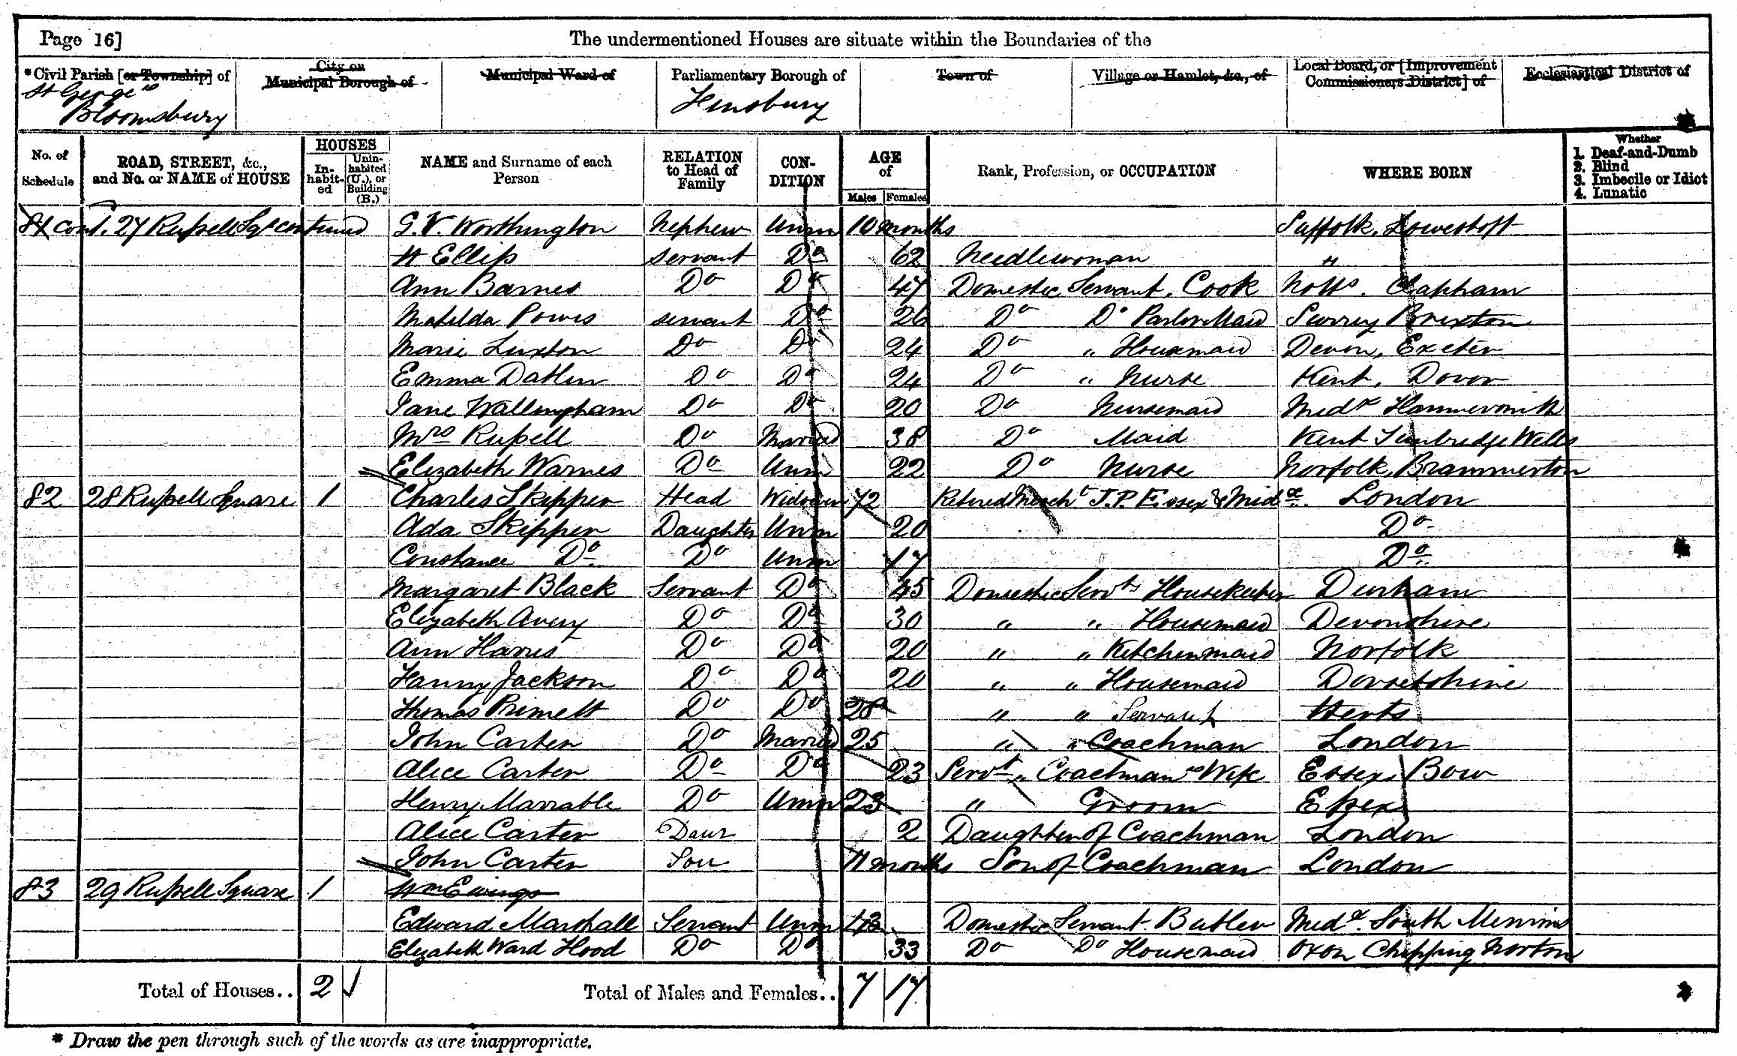 Page 16]
The undermentioned Houses are situate within the Boundaries of the
*Civil Parish [or Township] of
St George's
Bloomsbury
City or
Municipal Borough of
Municipal Ward of
Parliamentary Borough of
Finsbury
Town of
Village or Hamlet, &c., of
Local Board, or [Improvement
Commissioners District] of
Ecclesiastical District of
No. of
Schedule
ROAD, STREET, &c.,
and No. or NAME of HOUSE
HOUSES
In-
habit-
ed
Unin-
habited
(U.), or
Building
(B.)
NAME and Surname of each
Person
RELATION
to Head of
Family
CON-
DITION
AGE
of
Males Females
Rank, Profession, or OCCUPATION
WHERE BORN
Whether
1. Deaf-and-Dumb
2. Blind
3. Imbecile or Idiot
4. Lunatic
81 cont. 27 Russell Sqr continued G. V. Worthington Nephew Unm 10 months Suffolk, Lowestoft
H Ellis servant Do 62 Needlewoman "
Ann Barnes Do Do 47 Domestic Servant, Cook Notts. Clapham
Matilda Powis servant Do 26 Do Do Parlor Maid Surrey Brixton
Marie Luxton Do Do 24 Do " Housmaid Devon, Exeter
Emma Datlin Do Do 24 Do " Nurse Kent, Dover
Jane Wallingham Do Do 20 Do Nursemaid Midx Hammersmith
Mrs Russell Do Married 38 Do Maid Kent Tunbridge Wells
Elizabeth Warnes Do Unm 22 Do Nurse Norfolk, Brammerton
82 28 Russell Square 1 Charles Skipper Head Widower 72 Retired Mercht J.P. Essex & Midx London
Ada Skipper Daughter Unm 20 Do
Constance Do Do Unm 17 Do
Margaret Black Servant Do 45 Domestic Servt Housekeeper Durham
Elizabeth Avery Do Do 30 " " Housemaid Devonshire
Ann Harris Do Do 20 " " Kitchenmaid Norfolk
Fanny Jackson Do Do 20 " " Housemaid Dorsetshire
Thomas Primett Do Do 28 " " Servant Herts
John Carter Do Married 25 " " Coachman London
Alice Carter Do Do 23 Servt " Coachman's Wife Essex Bow
Henry Marrable Do Unm 23 " Groom Essex
Alice Carter Daur 2 Daughter of Coachman London
John Carter Son 11 months Son of Coachman London
83 29 Russell Square 1 Wm Ewings
Edward Marshall Servant Unm 43 Domestic Servant Butler Midx. South Mimms
Elizabeth Ward Hood Do Do 33 Do Do Housemaid Oxon Chipping Norton
Total of Houses.. 2 Total of Males and Females.. 7 17
* Draw the pen through such of the words as are inappropriate.